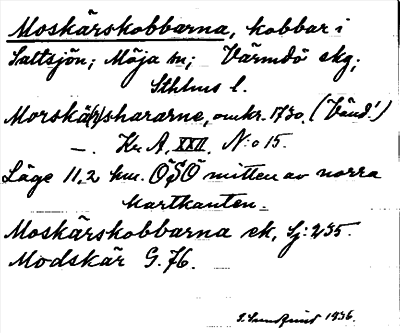 Moskärskobbarna, kobbar i
Saltsjön; Möja sn; Värmdö skg;
Sthlms l.
Morskä(r)shararne, omkr. 1730. (Vänd!)
—. Kr. A. XXII. N:o 15.
Läge 11,2 km. ÖSÖ mitten av norra
kartkanten.
Moskärskobbarna ek, Sj: 235.
Modskär G. 76.
1936.